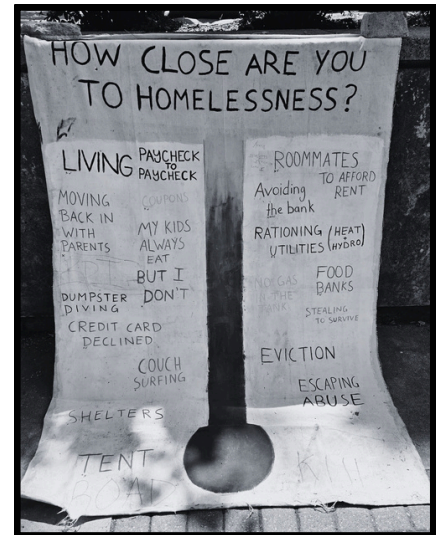 HOW CLOSE ARE YOU
TO HOMELESSNESS?
LIVING PAYCHECK
TO
PAYCHECK
COUPONS
MOVING
BACK IN
WITH
PARENTS
MY KIDS
ALWAYS
EAT
BUT I
DON'T
DUMPSTER
DIVING
CREDIT CARD
DECLINED
COUCH
SURFING
SHELTERS
TENT
ROAD
ROOMMATES
TO AFFORD
RENT
Avoiding
the bank
RATIONING (HEAT)
UTILITIES (HYDRO)
NO GAS
IN THE
TANK
FOOD
BANKS
STEALING
TO SURVIVE
EVICTION
ESCAPING
ABUSE